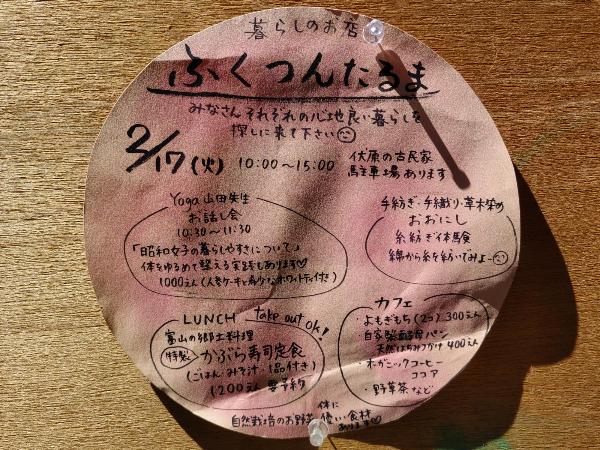 暮らしのお店
ふくつんたるま
みなさんそれぞれの心地良い暮らしを
探しに来て下さい
2/17(火) 10:00～15:00
伏原の古民家
駐車場あります
Yoga 山田先生
お話し会
10:30～11:30
「昭和女子の暮らしやすさについて」
体をゆるめて整える実践もあります♡
1000えん(人参ケーキと
ホワイトティ付き)
手紡ぎ・手織り・草木染め
おおにし
糸紡ぎ体験
綿から糸を紡いでみよ～
LUNCH take out ok!
富山の郷土料理
特製 かぶら寿司定食
(ごはん・みそ汁・1品付き)
1200えん 要予約
カフェ
・よもぎもち(2コ) 300えん
・自家製酵母パン
天然はちみつかけ 400えん
・オーガニックコーヒー
ココア
・野草茶など
自然栽培のお野菜
体に
優しい食材
あります♡